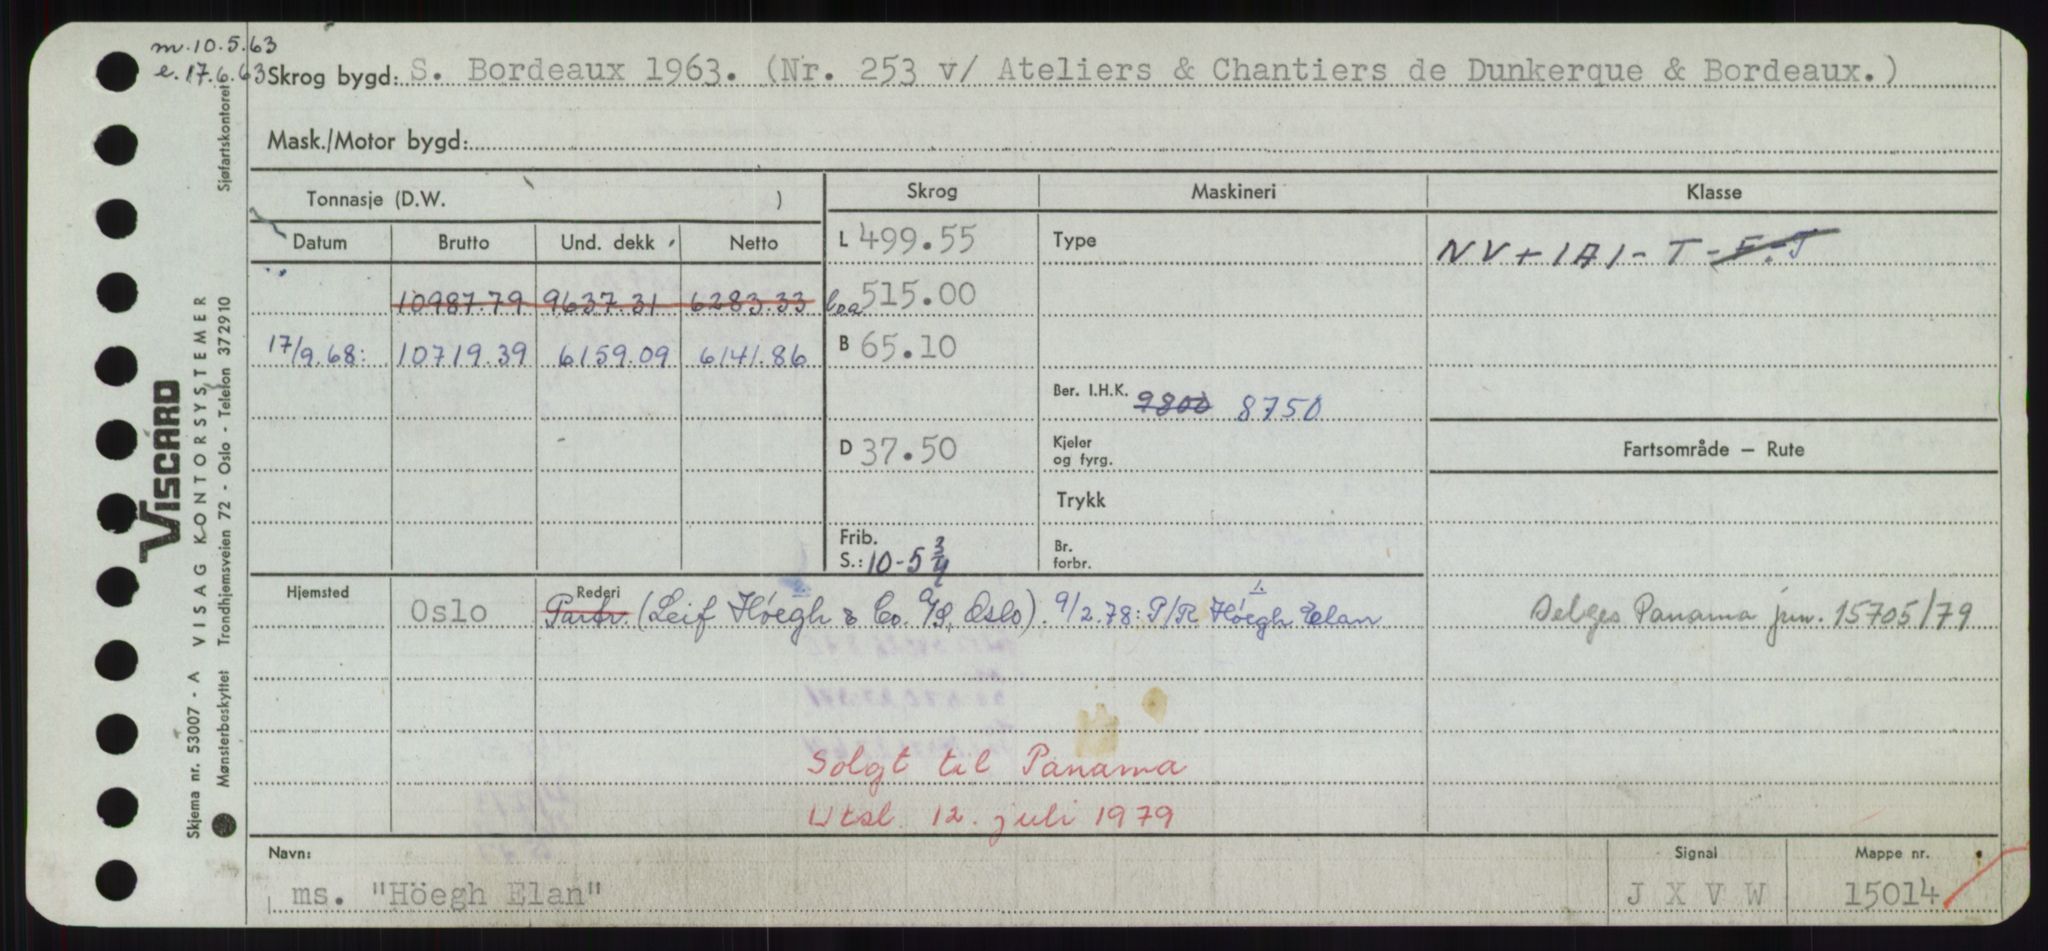 m. 10.5.63
e. 17.6.63
Skrog bygd: S. Bordeaux 1963. (Nr. 253 v/ Ateliers & Chantiers de Dunkerque & Bordeaux.)
Mask./Motor bygd:
Tonnasje (D.W. ) Skrog Maskineri Klasse
Datum Brutto Und. dekk Netto L 499.55 Type NV+1A1-T-F.-J
10987.79 9637.31 6283.33 loa 515.00
17/9.68: 10719.39 6159.09 6141.86 B 65.10
Ber. I.H.K. 9800 8750
D 37.50 Kjeler og fyrg. Fartsområde — Rute
Trykk
Frib. S.: 10-5 3/4 Br. forbr.
Hjemsted Oslo Rederi Partr. (Leif Höegh & Co. A/S, Oslo). 9/2.78: P/R Höegh Elan Selges Panama jnr. 15705/79
Solgt til Panama
Utsl. 12. juli 1979
Navn: Signal Mappe nr.
ms. "Höegh Elan" J X V W 15014
VISCARD
Skjema nr. 53007 - A VISAG KONTORSYSTEMER
Mønsterbeskyttet Trondhjemsveien 72 - Oslo - Telefon 372910 Sjøfartskontoret